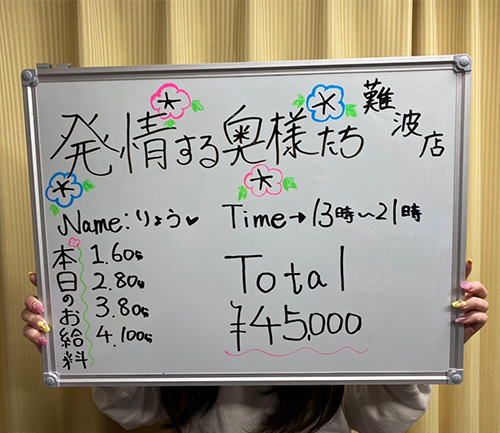 発情する奥様たち
難波店
Name:りょう♥
Time→13時~21時
本日のお給料
1.60分
2.80分
3.80分
4.100分
Total
¥45,000